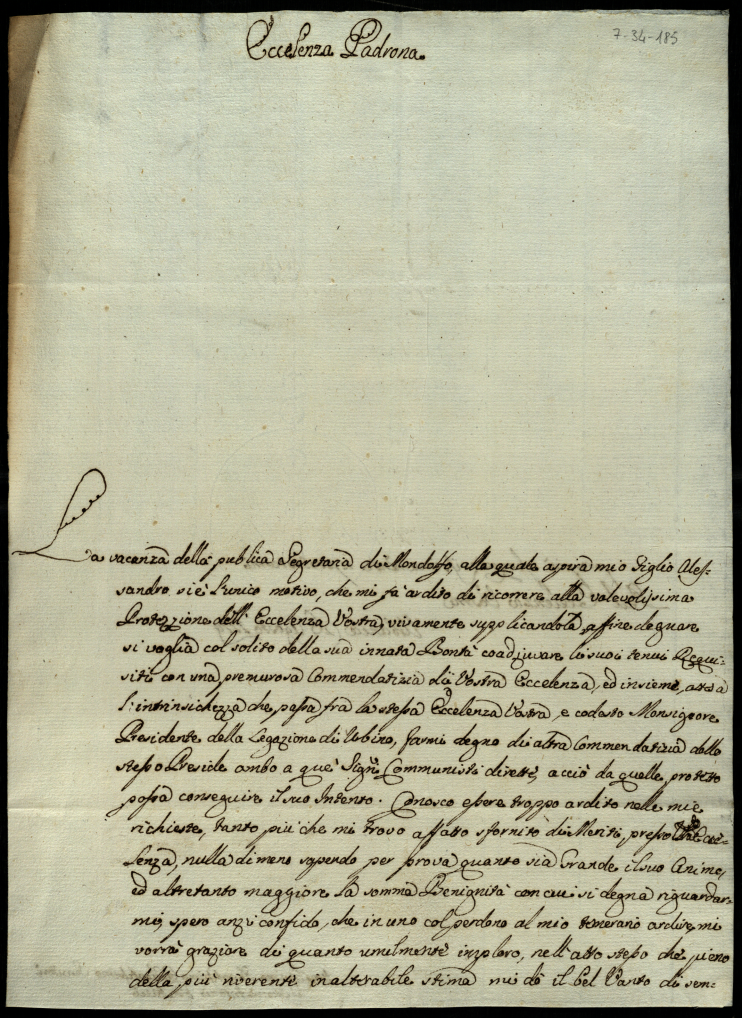 7-34-185
Eccelenza Padrona
La vacanza della publica Segretaria di Mondolfo, alla quale aspira mio Figlio Ales-
sandro si è l'unico motivo, che mi fà ardito di ricorrere alla valevolissima
Protezzione dell'Eccelenza Vostra, vivamente supplicandola, affine degnare
si voglia col solito della sua innata Bontà coadjuvare li suoi tenui Requi-
siti con una premurosa Commendatizia di Vostra Eccelenza, ed insieme, attesa
l'intrinsichezza che passa fra la stessa Eccelenza Vostra, e codesto Monsignore
Presidente della Legazione di Urbino, farmi degno di altra Commendatizia dello
stesso Preside ambo a que' Sign.ri Communisti dirette, acciò da quelle protetto
possa conseguire il suo Intento. Conosco essere troppo ardito nelle mie
richieste, tanto più che mi trovo affatto sfornito di Meriti presso Eccel-
lenza, nulla di meno sapendo per prova quanto sia Grande il suo Animo,
ed altretanto maggiore la somma Benignità con cui si degna riguardar-
mi, spero anzi confido, che in uno col perdono al mio temerario ardire mi
vorrà graziare di quanto umilmente imploro, nell'atto stesso che pieno
della più riverente inalterabile stima mi dò il bel Vanto di sem-